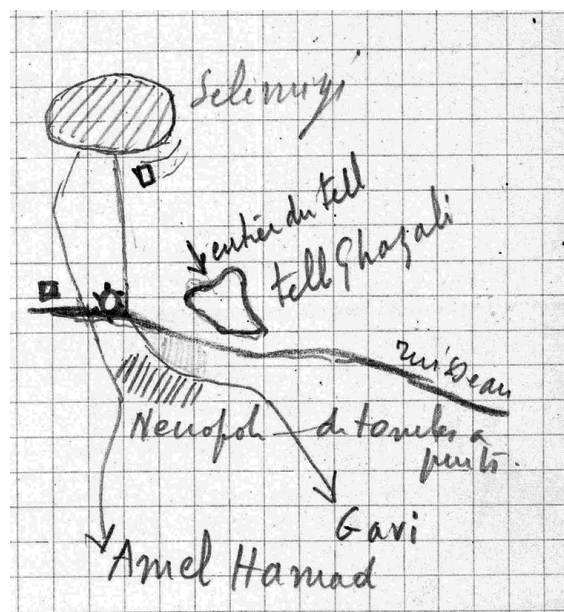 Selimiyé
entrée du tell
tell Ghazali
ruisseau
Necropole de tombes a
puits.
Gavi
Amel Hamad